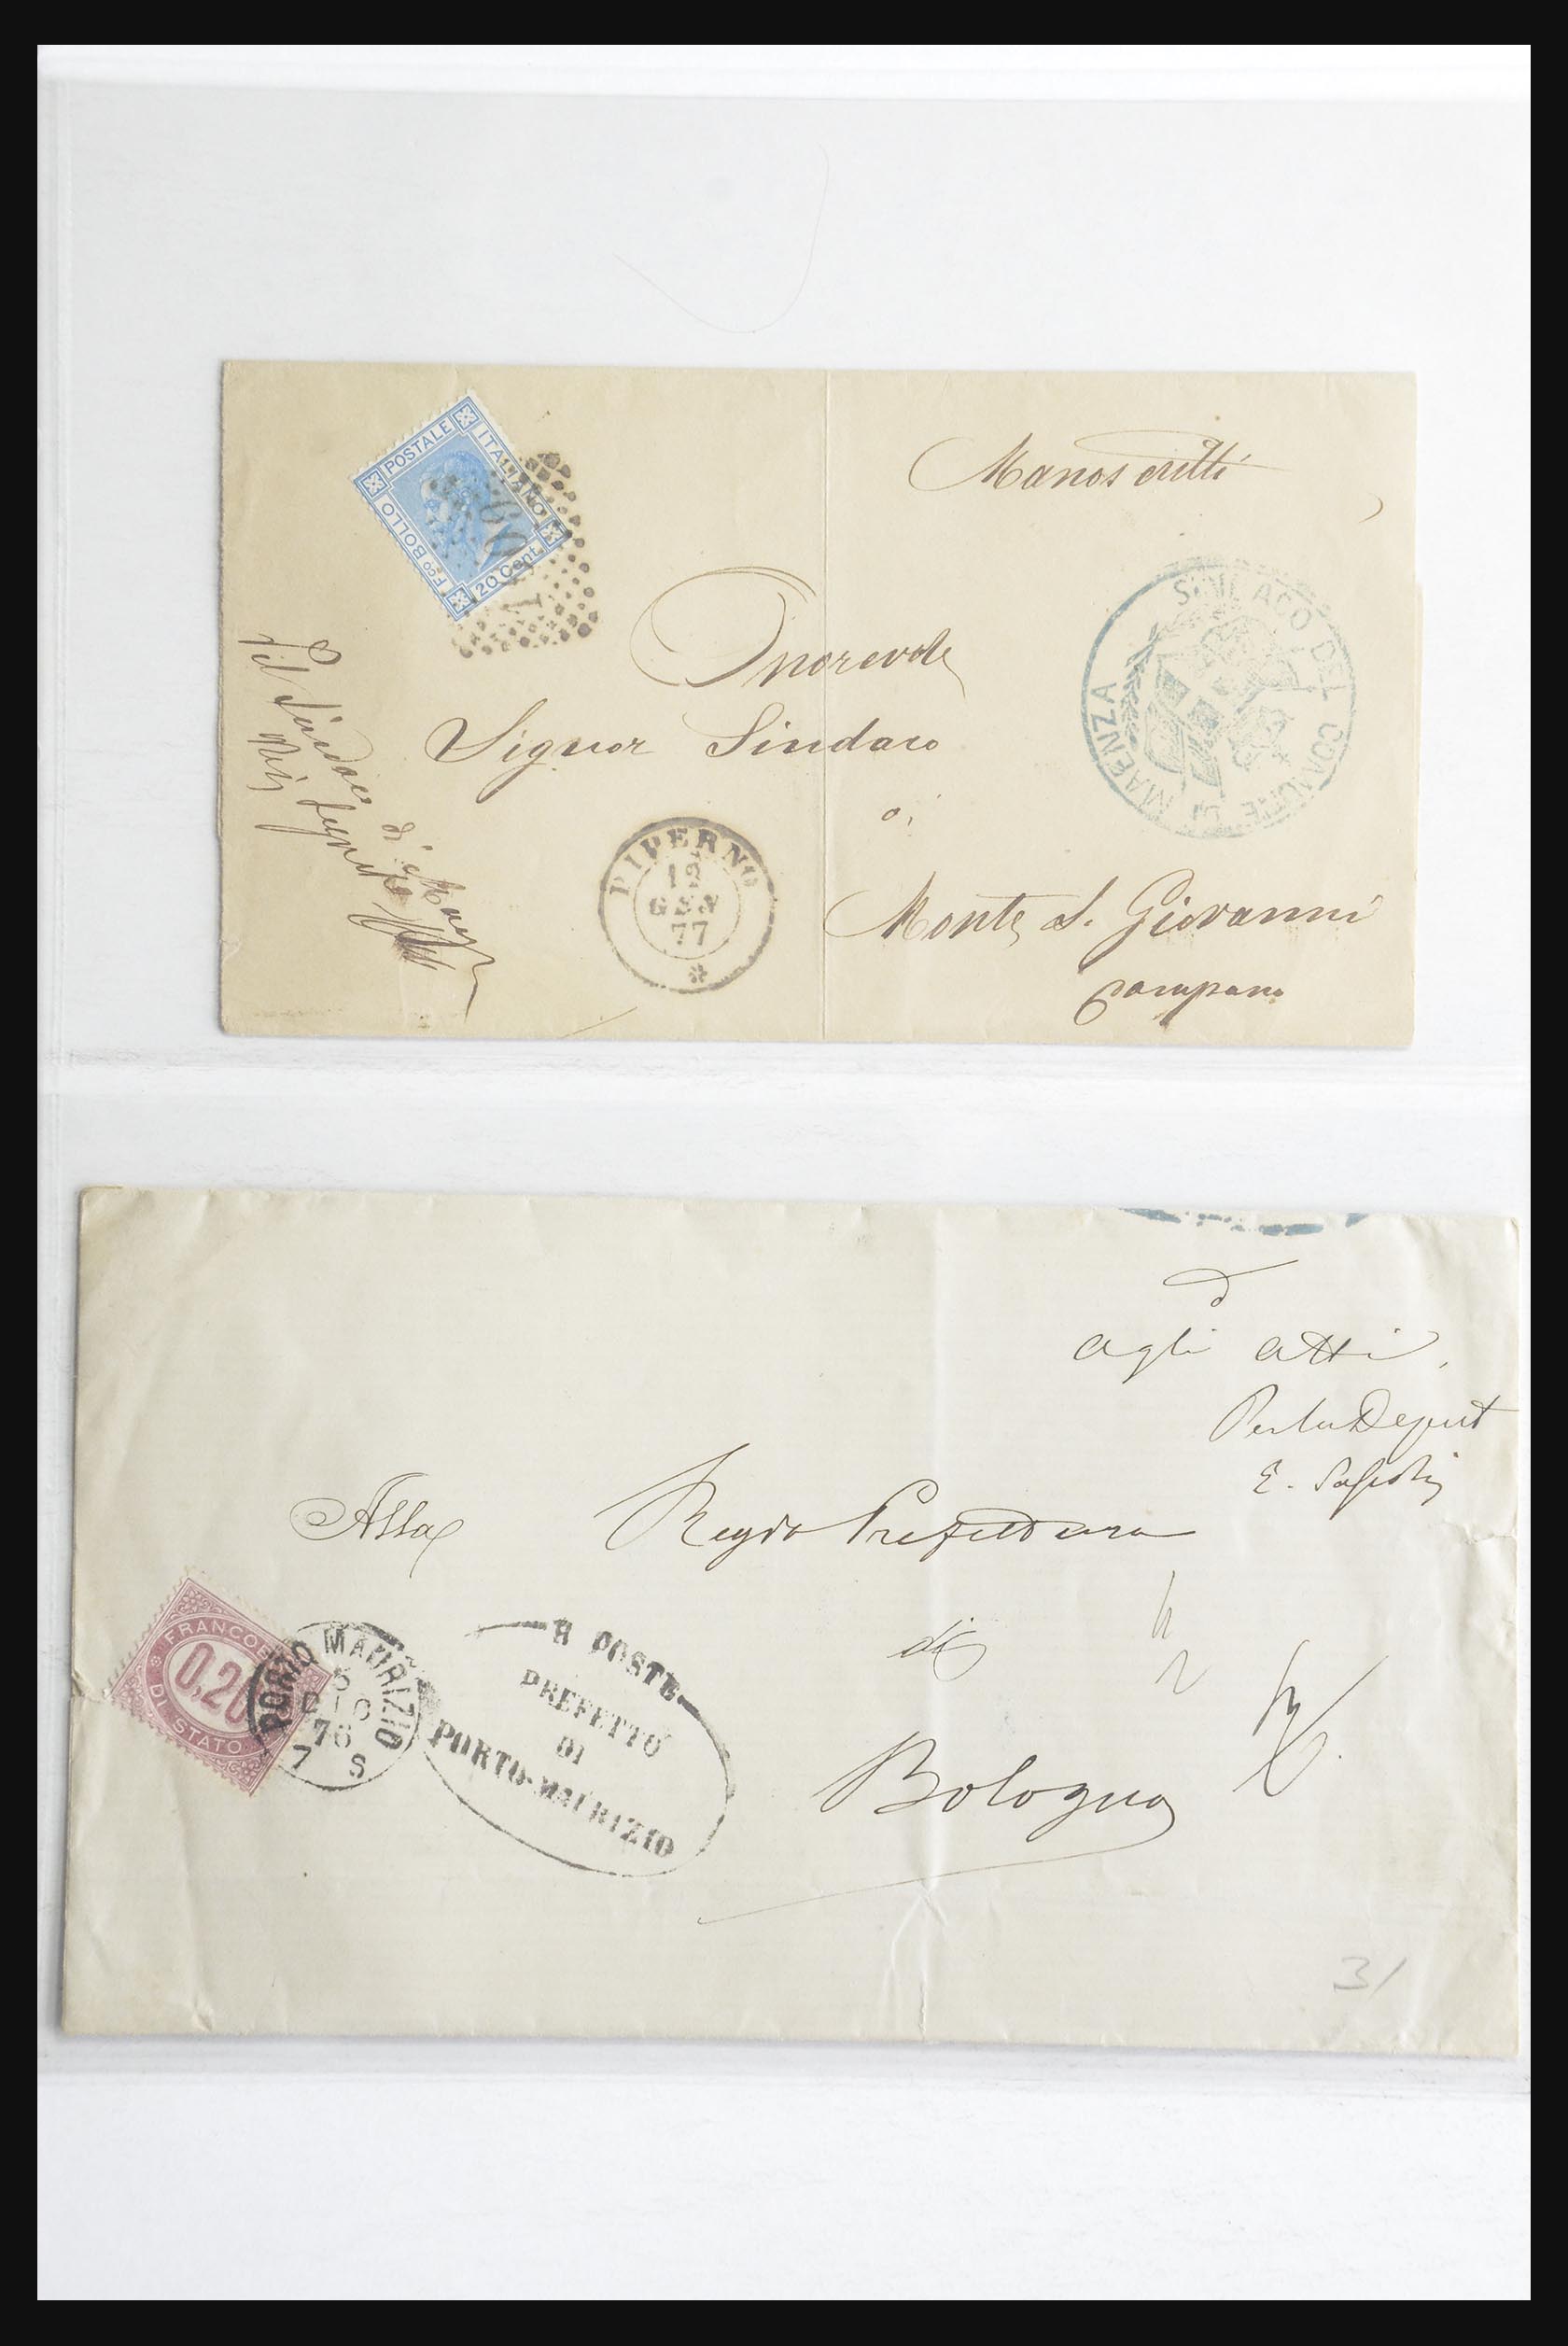 Manoscritti
POSTALE
ITALIANO
Fco BOLLO
20 Cent.
SINDACO DEL COMUNE DI MAENZA
Onorevole
Signor Sindaco
di
Monte S. Giovanni
Campano
Il Sindaco di
PIPERNO
12
GEN
77
agli atti.
E.
Alla Regia Prefettura
di
Bologna
FRANCOB
0,20
DI STATO
PORTO MAURIZIO
5
DIC
76
7 S
R POSTE
PREFETTO
DI
PORTO-MAURIZIO
31